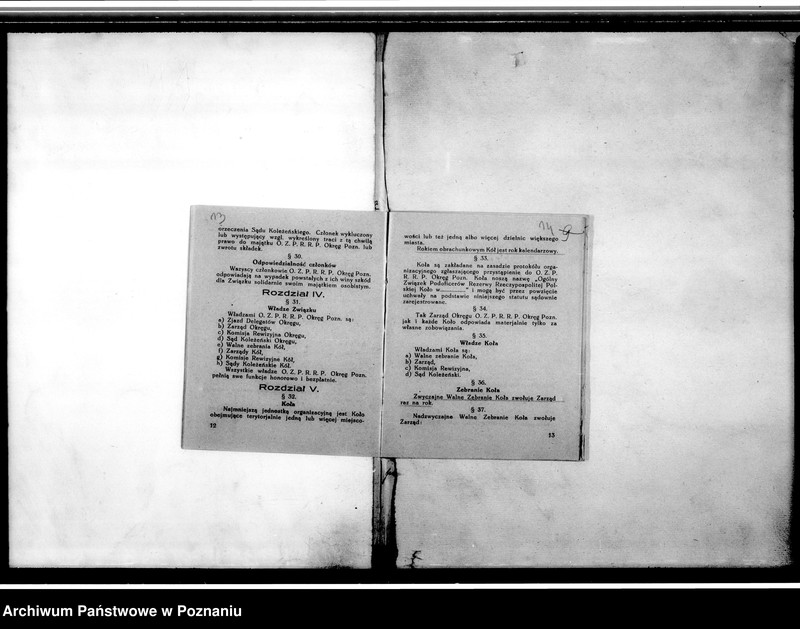 13
orzeczenia Sądu Koleżeńskiego. Członek wykluczony
lub występujący wzgl. wykreślony traci z tą chwilą
prawo do majątku O. Z. P. R. R. P. Okręg Pozn. lub
zwrotu składek.
§ 30.
Odpowiedzialność członków
Wszyscy członkowie O. Z. P. R. R. P. Okręg Pozn.
odpowiadają na wypadek powstałych z ich winy szkód
dla Związku solidarnie swoim majątkiem osobistym.
Rozdział IV.
§ 31.
Władze Związku
Władzami O. Z. P. R. R. P. Okręg Pozn. są:
a) Zjazd Delegatów Okręgu,
b) Zarząd Okręgu,
c) Komisja Rewizyjna Okręgu,
d) Sąd Koleżeński Okręgu,
e) Walne zebrania Kół,
f) Zarządy Kół,
g) Komisje Rewizyjne Kół,
h) Sądy Koleżeńskie Kół.
Wszystkie władze O. Z. P. R. R. P. Okręg Pozn.
pełnią swe funkcje honorowo i bezpłatnie.
Rozdział V.
§ 32.
Koła
Najmniejszą jednostką organizacyjną jest Koło
obejmujące terytorjalnie jedną lub więcej miejsco-
12
14
wości lub też jedną albo więcej dzielnic większego
miasta.
Rokiem obrachunkowym Kół jest rok kalendarzowy.
§ 33.
Koła są zakładane na zasadzie protokółu orga-
nizacyjnego zgłaszającego przystąpienie do O. Z. P.
R. R. P. Okręg Pozn. Koła noszą nazwę „Ogólny
Związek Podoficerów Rezerwy Rzeczypospolitej Pol-
skiej Koło w" i mogą być przez powzięcie
uchwały na podstawie niniejszego statutu sądownie
zarejestrowane.
§ 34.
Tak Zarząd Okręgu O. Z. P. R. R. P. Okręg Pozn.
jak i każde Koło odpowiada materjalnie tylko za
własne zobowiązania.
§ 35.
Władze Koła
Władzami Koła są:
a) Walne zebranie Koła,
b) Zarząd,
c) Komisja Rewizyjna,
d) Sąd Koleżeński.
§ 36.
Zebranie Koła
Zwyczajne Walne Zebranie Koła zwołuje Zarząd
raz na rok.
§ 37.
Nadzwyczajne Walne Zebranie Koła zwołuje
Zarząd:
13
Archiwum Państwowe w Poznaniu